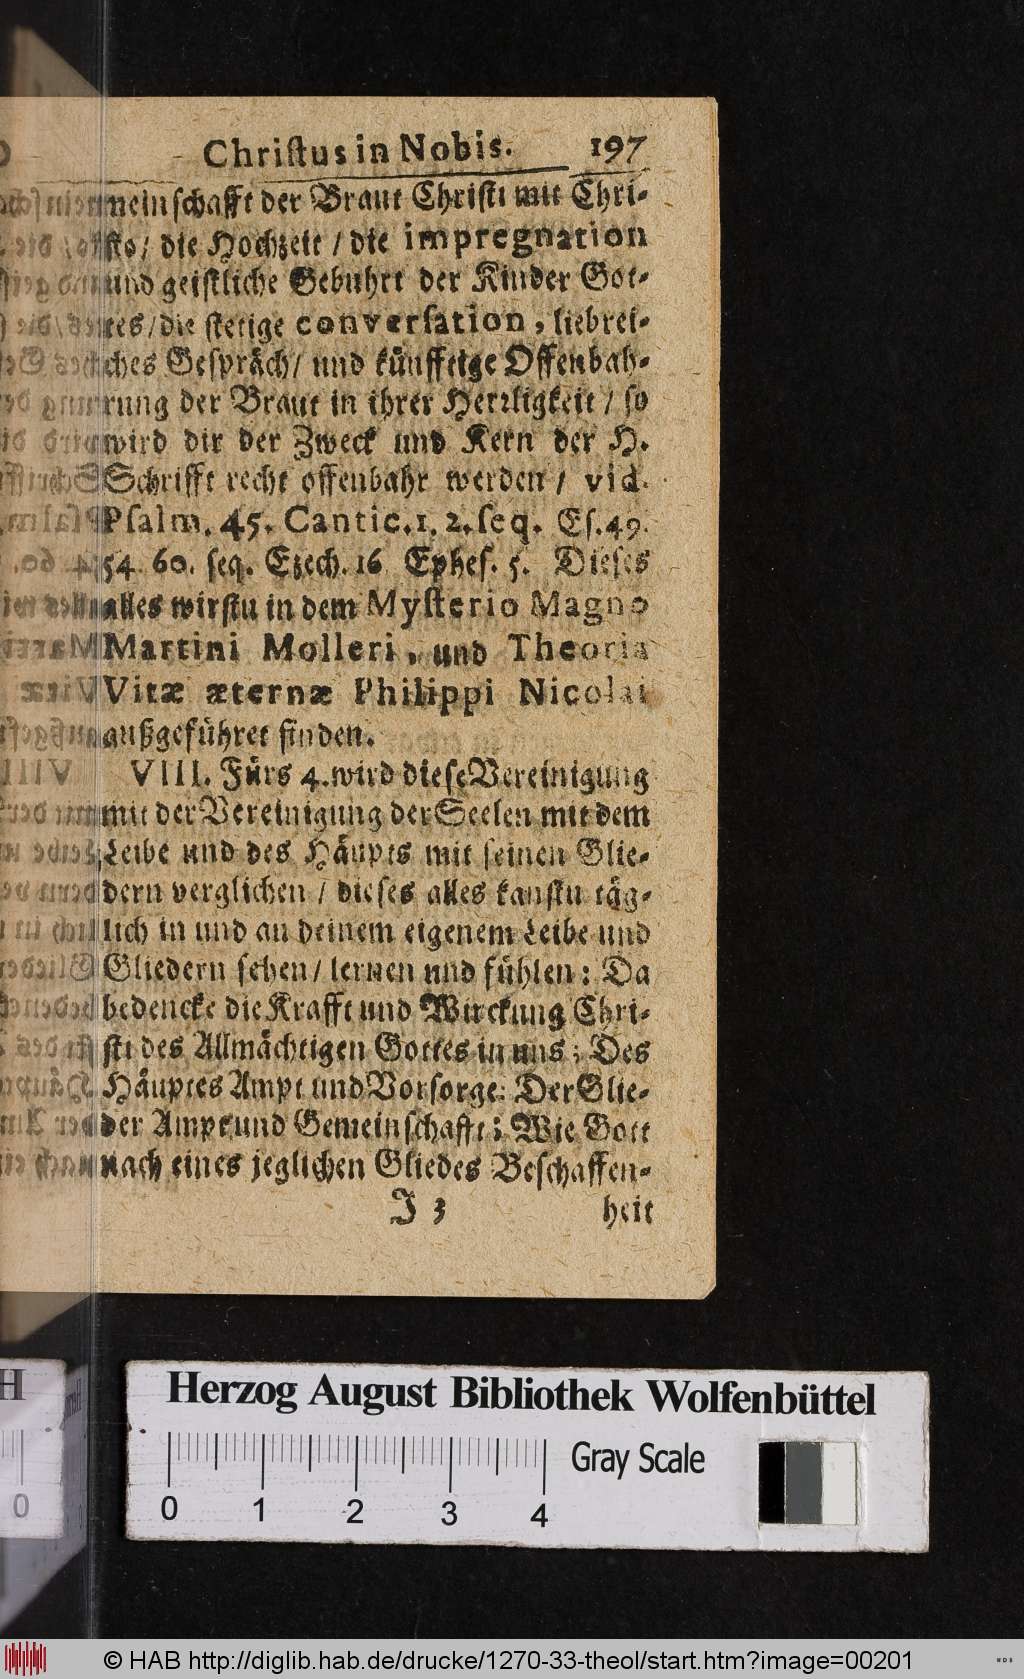 Christus in Nobis. 197
meinschafft der Braut Christi mit Chri-
sto/ die Hochzeit / die impregnation
und geistliche Gebuhrt der Kinder Got-
tes/die stetige conversation, liebrei-
ches Gespräch/ und künfftige Offenbah-
rung der Braut in ihrer Herꝛligkeit / so
wird dir der Zweck und Kern der H.
Schrifft recht offenbahr werden / vid.
Psalm. 45. Cantic. 1. 2. seq. Es. 49.
54. 60. seq. Ezech. 16 Ephes. 5. Dieses
alles wirstu in dem Mysterio Magno
Martini Molleri, und Theoria
Vitæ æternæ Philippi Nicolai
außgeführet finden.
VIII. Fürs 4. wird diese Vereinigung
mit der Vereinigung der Seelen mit dem
Leibe und des Häupts mit seinen Glie-
dern verglichen / dieses alles kanstu täg-
lich in und an deinem eigenem Leibe und
Gliedern sehen/ lernen und fühlen: Da
bedencke die Krafft und Wirckung Chri-
sti des Allmächtigen Gottes in uns; Des
Häuptes Ampt und Vorsorge: Der Glie-
der Ampt und Gemeinschafft; Wie Gott
nach eines jeglichen Gliedes Beschaffen-
J 3 heit
Herzog August Bibliothek Wolfenbüttel
Gray Scale
0 1 2 3 4
© HAB http://diglib.hab.de/drucke/1270-33-theol/start.htm?image=00201